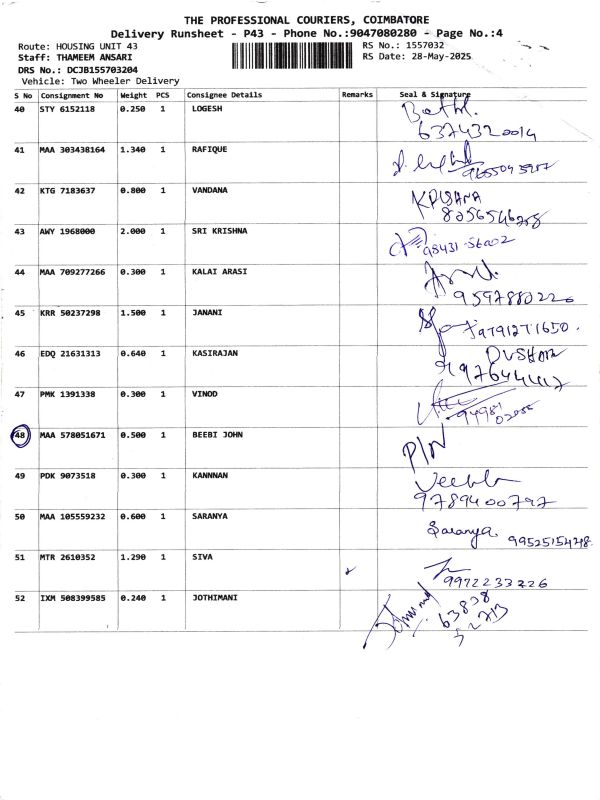 THE PROFESSIONAL COURIERS, COIMBATORE
Delivery Runsheet - P43 - Phone No.:9047080280 - Page No.:4
Route: HOUSING UNIT 43 RS No.: 1557032
Staff: THAMEEM ANSARI RS Date: 28-May-2025
DRS No.: DCJB155703204
Vehicle: Two Wheeler Delivery
S No Consignment No Weight PCS Consignee Details Remarks Seal & Signature
40 STY 6152118 0.250 1 LOGESH
6374320014
41 MAA 303438164 1.340 1 RAFIQUE
42 KTG 7183637 0.800 1 VANDANA
43 AWY 1968000 2.000 1 SRI KRISHNA
98431-56002
44 MAA 709277266 0.300 1 KALAI ARASI
9597880226
45 KRR 50237298 1.500 1 JANANI
9791271650.
46 EDQ 21631313 0.640 1 KASIRAJAN
47 PMK 1391338 0.300 1 VINOD
48 MAA 578051671 0.500 1 BEEBI JOHN
P/N
49 PDK 9073518 0.300 1 KANNNAN
9789400797
50 MAA 105559232 0.600 1 SARANYA
Saranya
51 MTR 2610352 1.290 1 SIVA
9972233226
52 IXM 508399585 0.240 1 JOTHIMANI
63838
52713